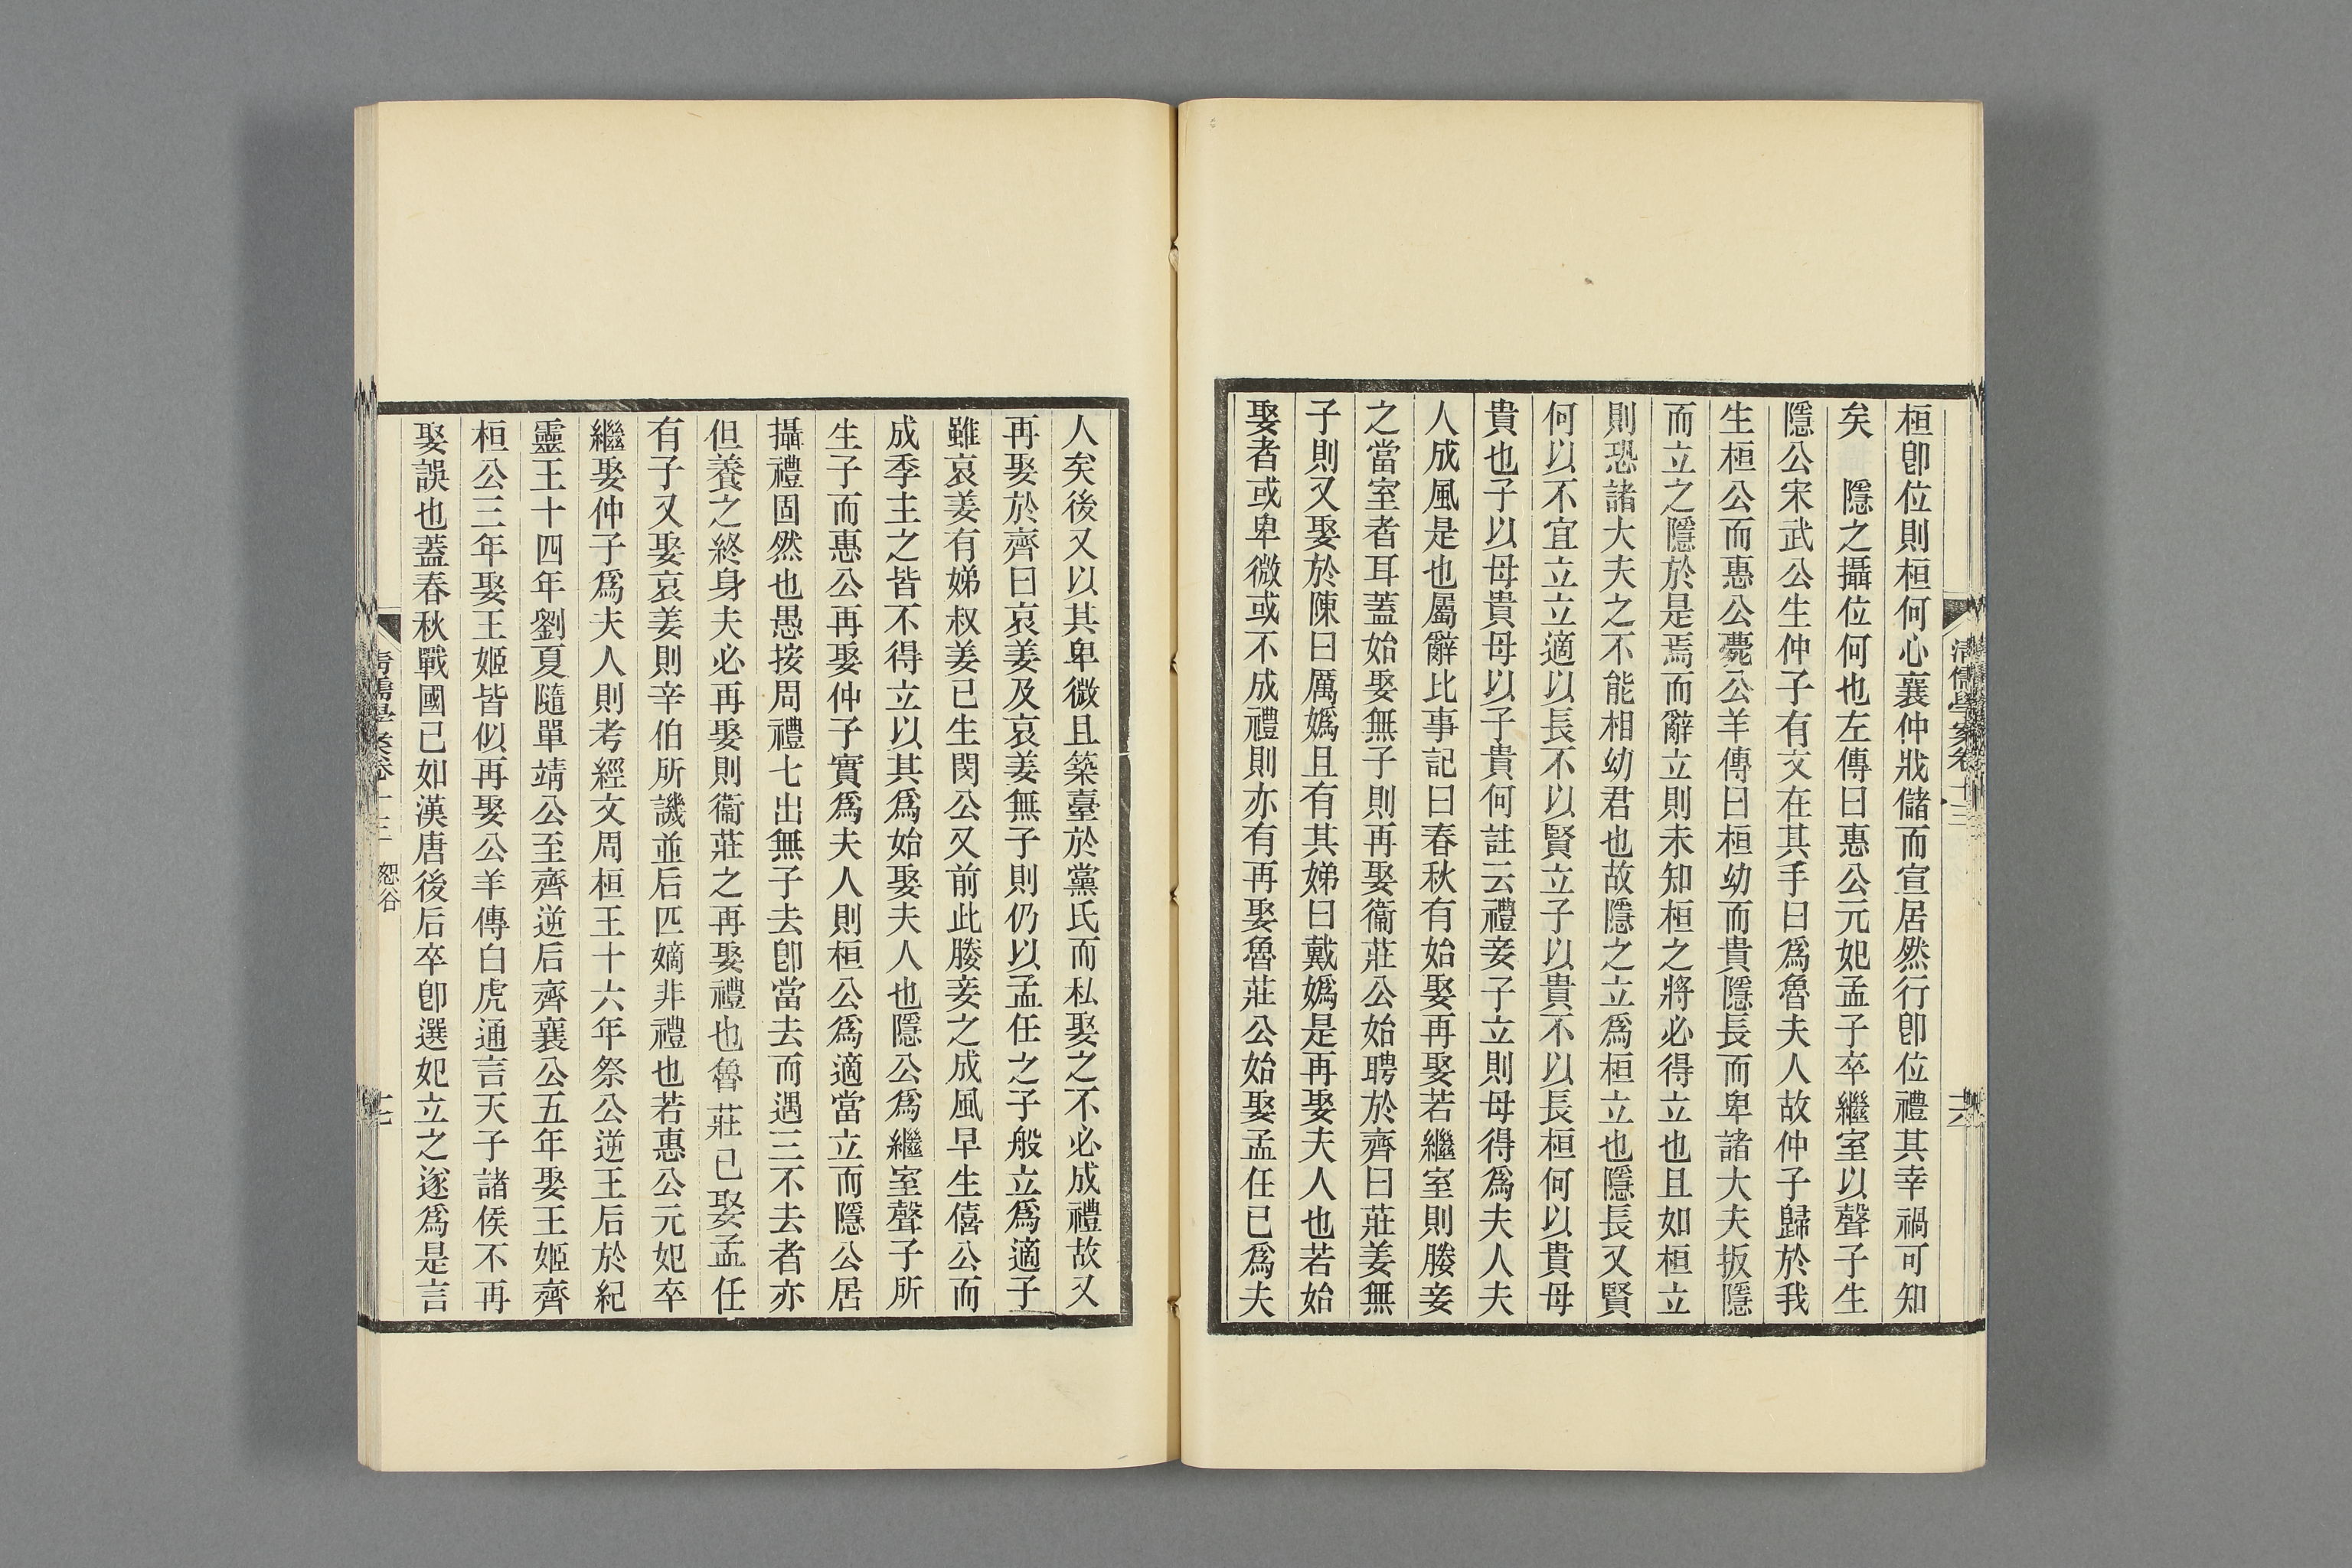 清儒學案卷十三
桓卽位則桓何心襄仲戕儲而宣居然行卽位禮其幸禍可知
矣　隱之攝位何也左傳曰惠公元妃孟子卒繼室以聲子生
隱公宋武公生仲子有文在其手曰爲魯夫人故仲子歸於我
生桓公而惠公薨公羊傳曰桓幼而貴隱長而卑諸大夫扳隱
而立之隱於是焉而辭立則未知桓之將必得立也且如桓立
則恐諸大夫之不能相幼君也故隱之立爲桓立也隱長又賢
何以不宜立立適以長不以賢立子以貴不以長桓何以貴母
貴也子以母貴母以子貴何註云禮妾子立則母得爲夫人夫
人成風是也屬辭比事記曰春秋有始娶再娶若繼室則媵妾
之當室者耳蓋始娶無子則再娶衞莊公始聘於齊曰莊姜無
子則又娶於陳曰厲嬀且有其娣曰戴嬀是再娶夫人也若始
娶者或卑微或不成禮則亦有再娶魯莊公始娶孟任已爲夫
人矣後又以其卑微且築臺於黨氏而私娶之不必成禮故又
再娶於齊曰哀姜及哀姜無子則仍以孟任之子般立爲適子
雖哀姜有娣叔姜已生閔公又前此媵妾之成風早生僖公而
成季主之皆不得立以其爲始娶夫人也隱公爲繼室聲子所
生子而惠公再娶仲子實爲夫人則桓公爲適當立而隱公居
攝禮固然也愚按周禮七出無子去卽當去而遇三不去者亦
但養之終身夫必再娶則衞莊之再娶禮也魯莊已娶孟任
有子又娶哀姜則辛伯所譏並后匹嫡非禮也若惠公元妃卒
繼娶仲子爲夫人則考經文周桓王十六年祭公逆王后於紀
靈王十四年劉夏隨單靖公至齊逆后齊襄公五年娶王姬齊
桓公三年娶王姬皆似再娶公羊傳白虎通言天子諸侯不再
娶誤也蓋春秋戰國已如漢唐後后卒卽選妃立之遂爲是言
清儒學案卷十三　恕谷